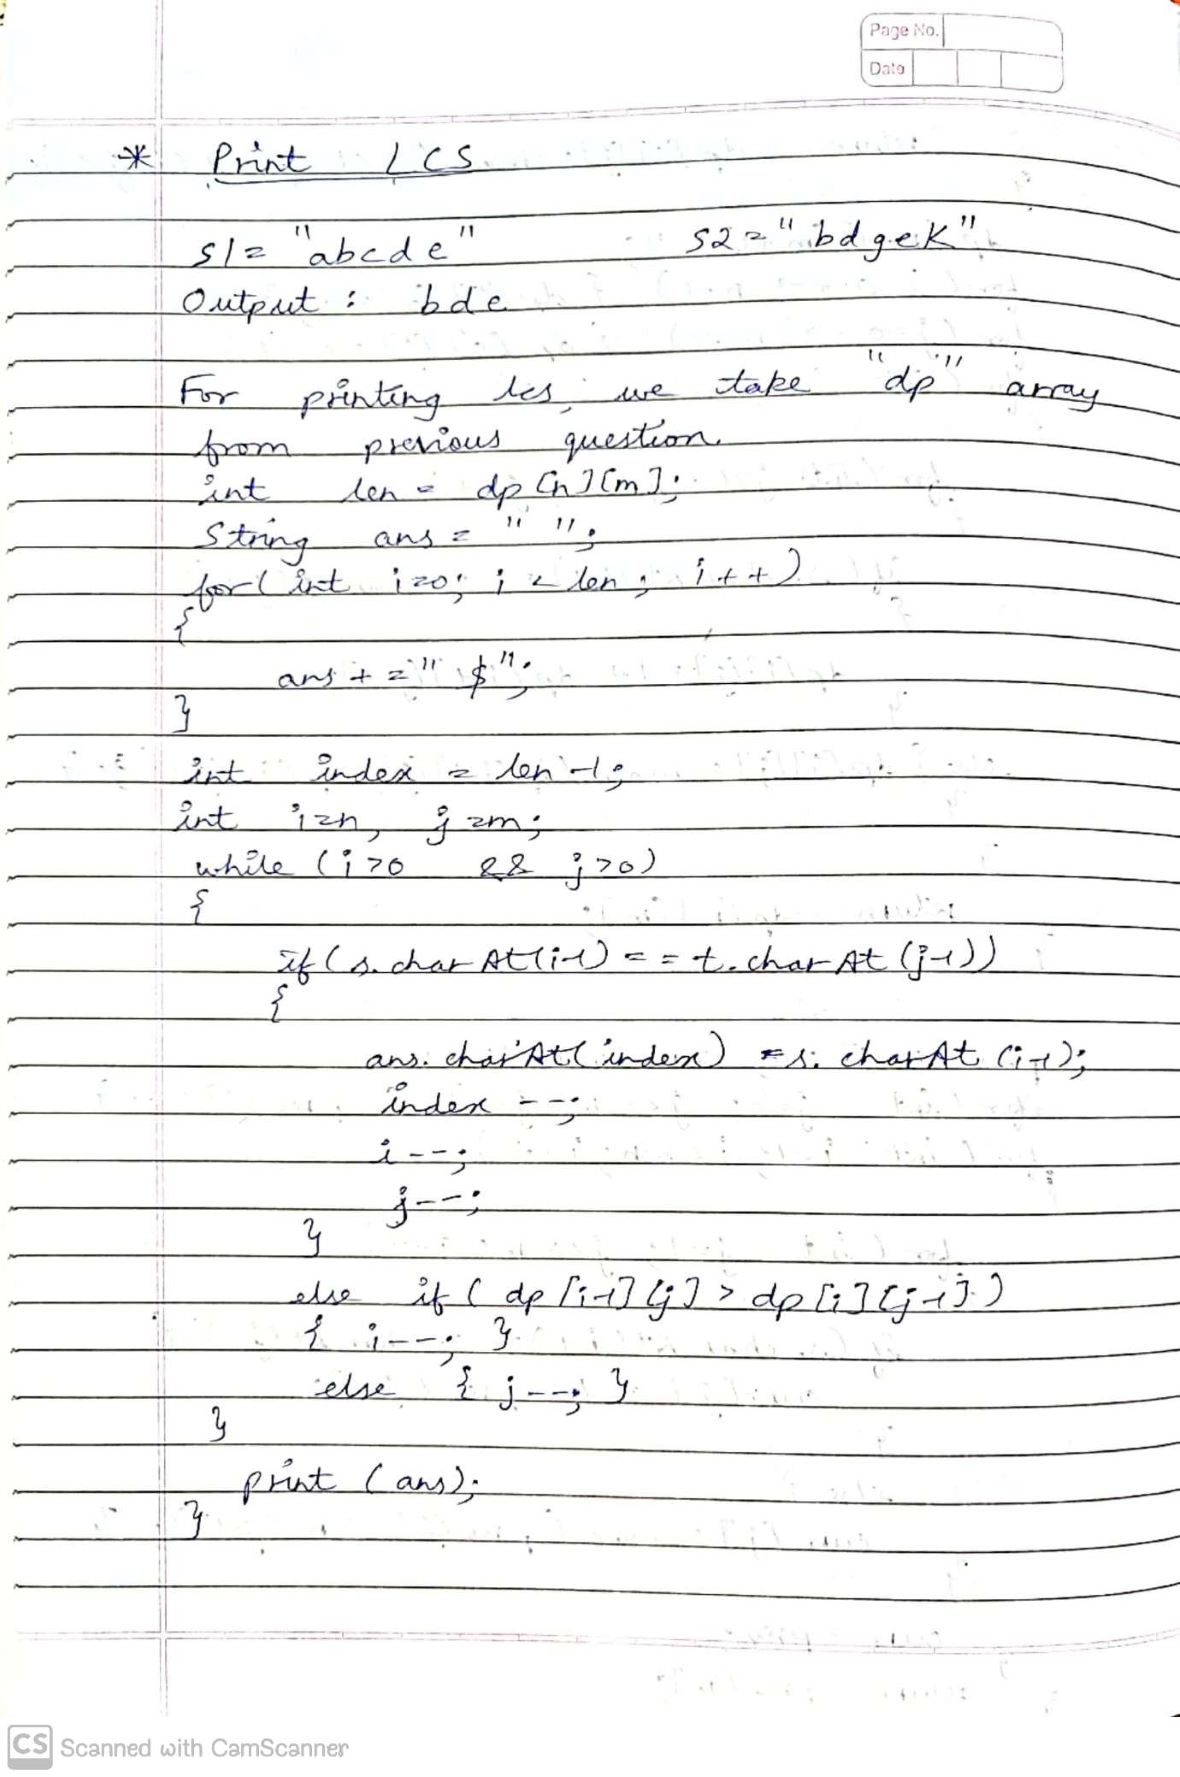 Page No.
Date
* Print LCS
S1 = "abcde" S2 = "bdgek"
Output : bde
For printing lcs, we take "dp" array
from previous question.
int len = dp[n][m];
String ans = " ";
for( int i=0; i < len ; i++)
{
ans += "$";
}
int index = len-1;
int i=n, j=m;
while (i>0 && j>0)
{
if (s.charAt(i-1) == t.charAt(j-1))
{
ans.charAt(index) = s.charAt(i-1);
index --;
i--;
j--;
}
else if ( dp[i-1][j] > dp[i][j-1])
{ i--; }
else { j--; }
}
print (ans);
}
CS Scanned with CamScanner